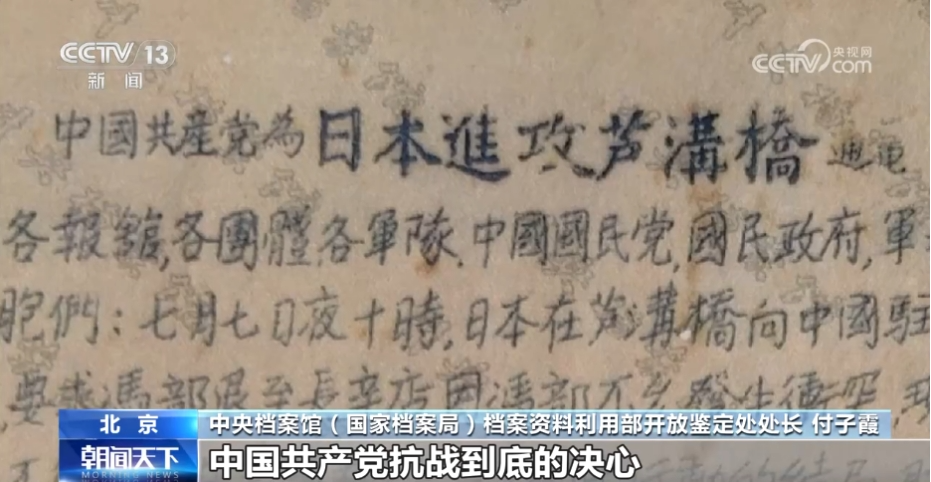 CCTV 13
新闻
央视网
CCTV.com
中國共産党為日本進攻芦溝橋通電
各報館,各團體,各軍隊,中國國民党,國民政府,軍
胞們:七月七日夜十時,日本在芦溝橋向中國駐
要求馮部退至長辛店,因馮部不允發生衝突,現
北京
中央档案馆(国家档案局)档案资料利用部开放鉴定处处长 付子霞
朝闻天下
MORNING NEWS
中国共产党抗战到底的决心